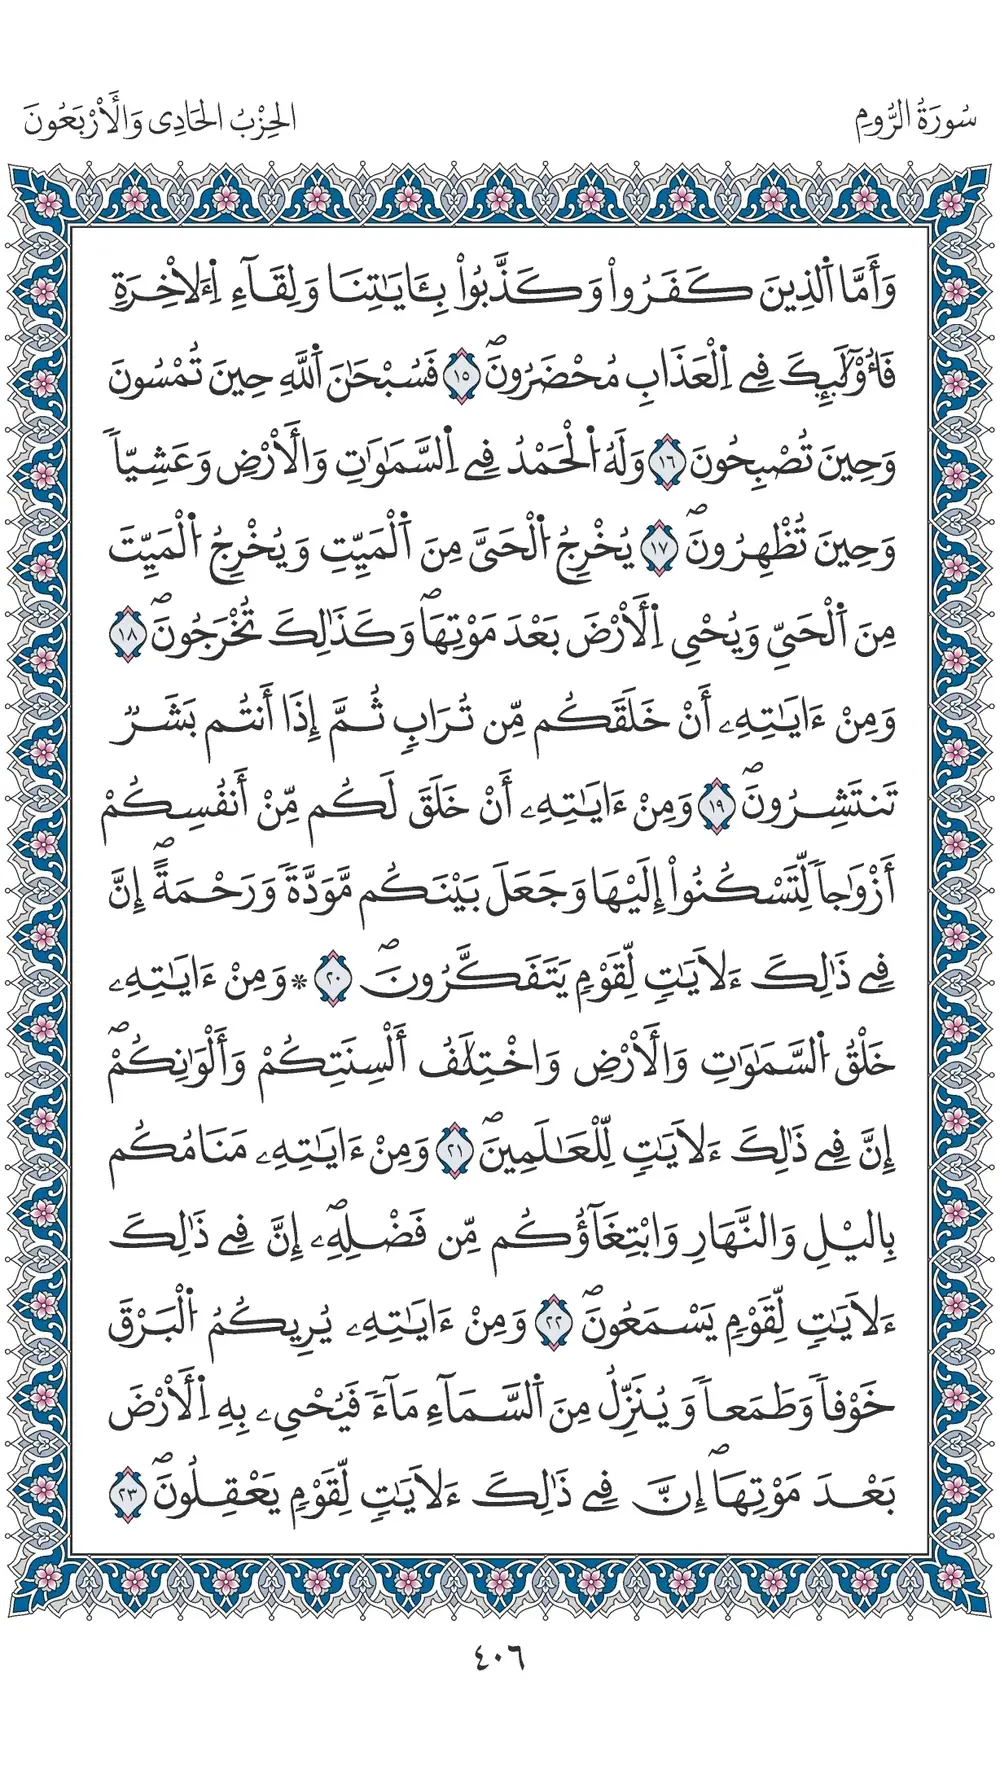 سُورَةُ الرُّومِ
الحِزْبُ الحَادِى وَالْأَرْبَعُونَ
وَأَمَّا اَ۬لذِينَ كَفَرُواْ وَكَذَّبُواْ بِـَٔايَٰتِنَا وَلِقَآءِ اِ۬لَاخِرَةِ
فَأُوْلَٰٓئِكَ فِے اِ۬لْعَذَابِ مُحْضَرُونَۖ ١٥ فَسُبْحَٰنَ اَ۬للَّهِ حِينَ تُمْسُونَ
وَحِينَ تُصْبِحُونَ ١٦ وَلَهُ اُ۬لْحَمْدُ فِے اِ۬لسَّمَٰوَٰتِ وَالَارْضِ وَعَشِيّاٗ
وَحِينَ تُظْهِرُونَۖ ١٧ يُخْرِجُ اُ۬لْحَيَّ مِنَ اَ۬لْمَيِّتِ وَيُخْرِجُ اُ۬لْمَيِّتَ
مِنَ اَ۬لْحَيِّ وَيُحْيِ اِ۬لَارْضَ بَعْدَ مَوْتِهَاۖ وَكَذَٰلِكَ تُخْرَجُونَۖ ١٨
وَمِنْ ءَايَٰتِهِۦٓ أَنْ خَلَقَكُم مِّن تُرَابٖ ثُمَّ إِذَآ أَنتُم بَشَرٞ
تَنتَشِرُونَۖ ١٩ وَمِنْ ءَايَٰتِهِۦٓ أَنْ خَلَقَ لَكُم مِّنْ أَنفُسِكُمْ
أَزْوَٰجاٗ لِّتَسْكُنُوٓاْ إِلَيْهَا وَجَعَلَ بَيْنَكُم مَّوَدَّةٗ وَرَحْمَةًۖ إِنَّ
فِے ذَٰلِكَ ءَلَايَٰتٖ لِّقَوْمٖ يَتَفَكَّرُونَۖ ٢٠ * وَمِنْ ءَايَٰتِهِۦ
خَلْقُ اُ۬لسَّمَٰوَٰتِ وَالَارْضِ وَاخْتِلَٰفُ أَلْسِنَتِكُمْ وَأَلْوَٰنِكُمْۖ
إِنَّ فِے ذَٰلِكَ ءَلَايَٰتٖ لِّلْعَٰلَمِينَۖ ٢١ وَمِنْ ءَايَٰتِهِۦ مَنَامُكُم
بِاليْلِ وَالنَّهَارِ وَابْتِغَآؤُكُم مِّن فَضْلِهِۦٓۖ إِنَّ فِے ذَٰلِكَ
ءَلَايَٰتٖ لِّقَوْمٖ يَسْمَعُونَۖ ٢٢ وَمِنْ ءَايَٰتِهِۦ يُرِيكُمُ اُ۬لْبَرْقَ
خَوْفاٗ وَطَمَعاٗ وَيُنَزِّلُ مِنَ اَ۬لسَّمَآءِ مَآءٗ فَيُحْيِۦ بِهِ اِ۬لَارْضَ
بَعْدَ مَوْتِهَآۖ إِنَّ فِے ذَٰلِكَ ءَلَايَٰتٖ لِّقَوْمٖ يَعْقِلُونَۖ ٢٣
٤٠٦